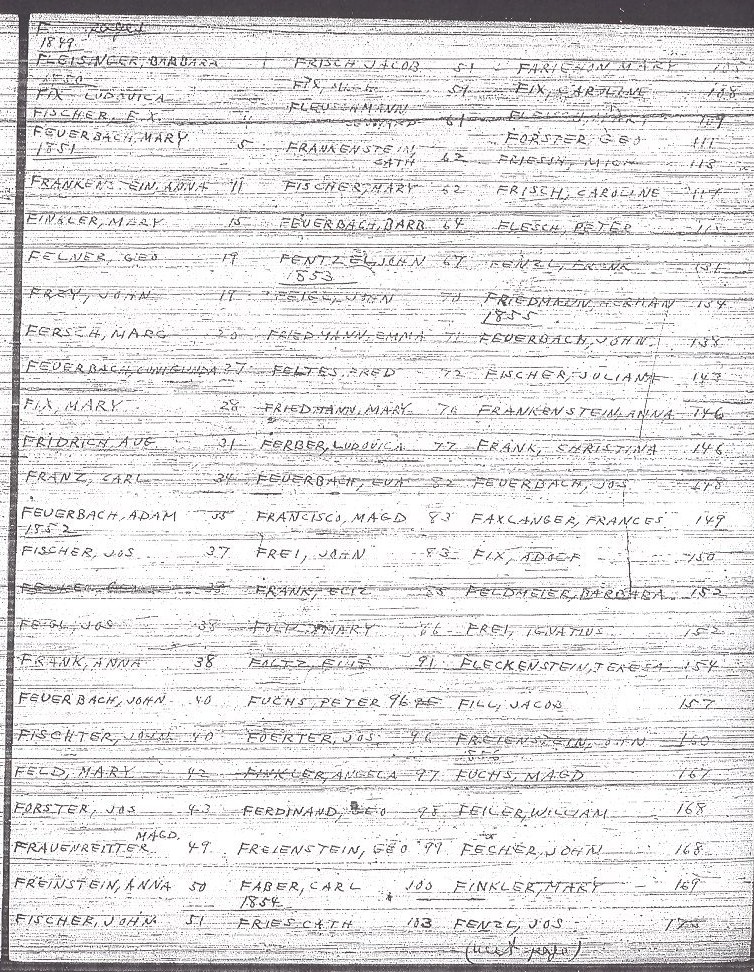 F pages
1849
FLEISINGER, BARBARA 1
1850
FIX LUDOVICA
FISCHER, F.X.
FEUERBACH, MARY 5
1851
FRANKENSTEIN, ANNA 11
FINKLER, MARY 15
FELNER, GEO 19
FREY, JOHN 19
FERSCH, MARG 20
FEUERBACH, CUNIGUNDA 27
FIX, MARY 28
FRIDRICH, AUG 31
FRANZ, CARL 34
FEUERBACH, ADAM 35
1852
FISCHER, JOS 37
FEIGL, JOS 38
FRANK, ANNA 38
FEUERBACH, JOHN 40
FISCHTER, JOHN 40
FELD, MARY 42
FORSTER, JOS 43
MAGD.
FRAUENREITTER 49
FREINSTEIN, ANNA 50
FISCHER, JOHN 51
FRISCH JACOB 51
FIX, 54
FLEUSCHMANN
61
FRANKENSTEIN,
CATH 62
FISCHER, MARY 62
FEUERBACH, BARB 64
FENTZEL, JOHN 67
1853
FEIGEL, JOHN 70
FRIEDMANN, EMMA 71
FELTES, FRED 72
FRIEDMANN, MARY 76
FERBER, LUDOVICA 77
FEUERBACH, EVA 82
FRANCISCO, MAGD 83
FREI, JOHN 83
FRANK, ELIZ 85
FOLTZ, MARY 86
FOLTZ, ELIZ 91
FUCHS, PETER 96
FOERTER, JOS 96
FINKLER, ANGELA 97
FERDINAND, GEO 98
FREIENSTEIN, GEO 99
FABER, CARL 103
1854
FRIES, CATH 103
MARY 105
FIX, CAROLINE 108
FLEISCH, MARY 109
FORSTER, GEO 111
FRIESIN, MICH 113
FRISCH, CAROLINE 114
FLESCH, PETER 115
FENZL, FRANK 131
FRIEDMANN, HERMAN 134
1855
FEUERBACH, JOHN 138
FISCHER, JULIANE 143
FRANKENSTEIN, ANNA 146
FRANK, CHRISTINA 146
FEUERBACH, JOS 148
FAXLANGER, FRANCES 149
FIX, ADOLF 150
FELDMEIER, BARBARA 152
FREI, IGNATIUS 152
FLECKENSTEIN, TERESA 154
FILL, JACOB 157
FREIENSTEIN, JOHN 160
1856
FUCHS, MAGD 167
FEILER, WILLIAM 168
or
FECHER, JOHN 168
FINKLER, MARY 169
FENZL, JOS
(next page)